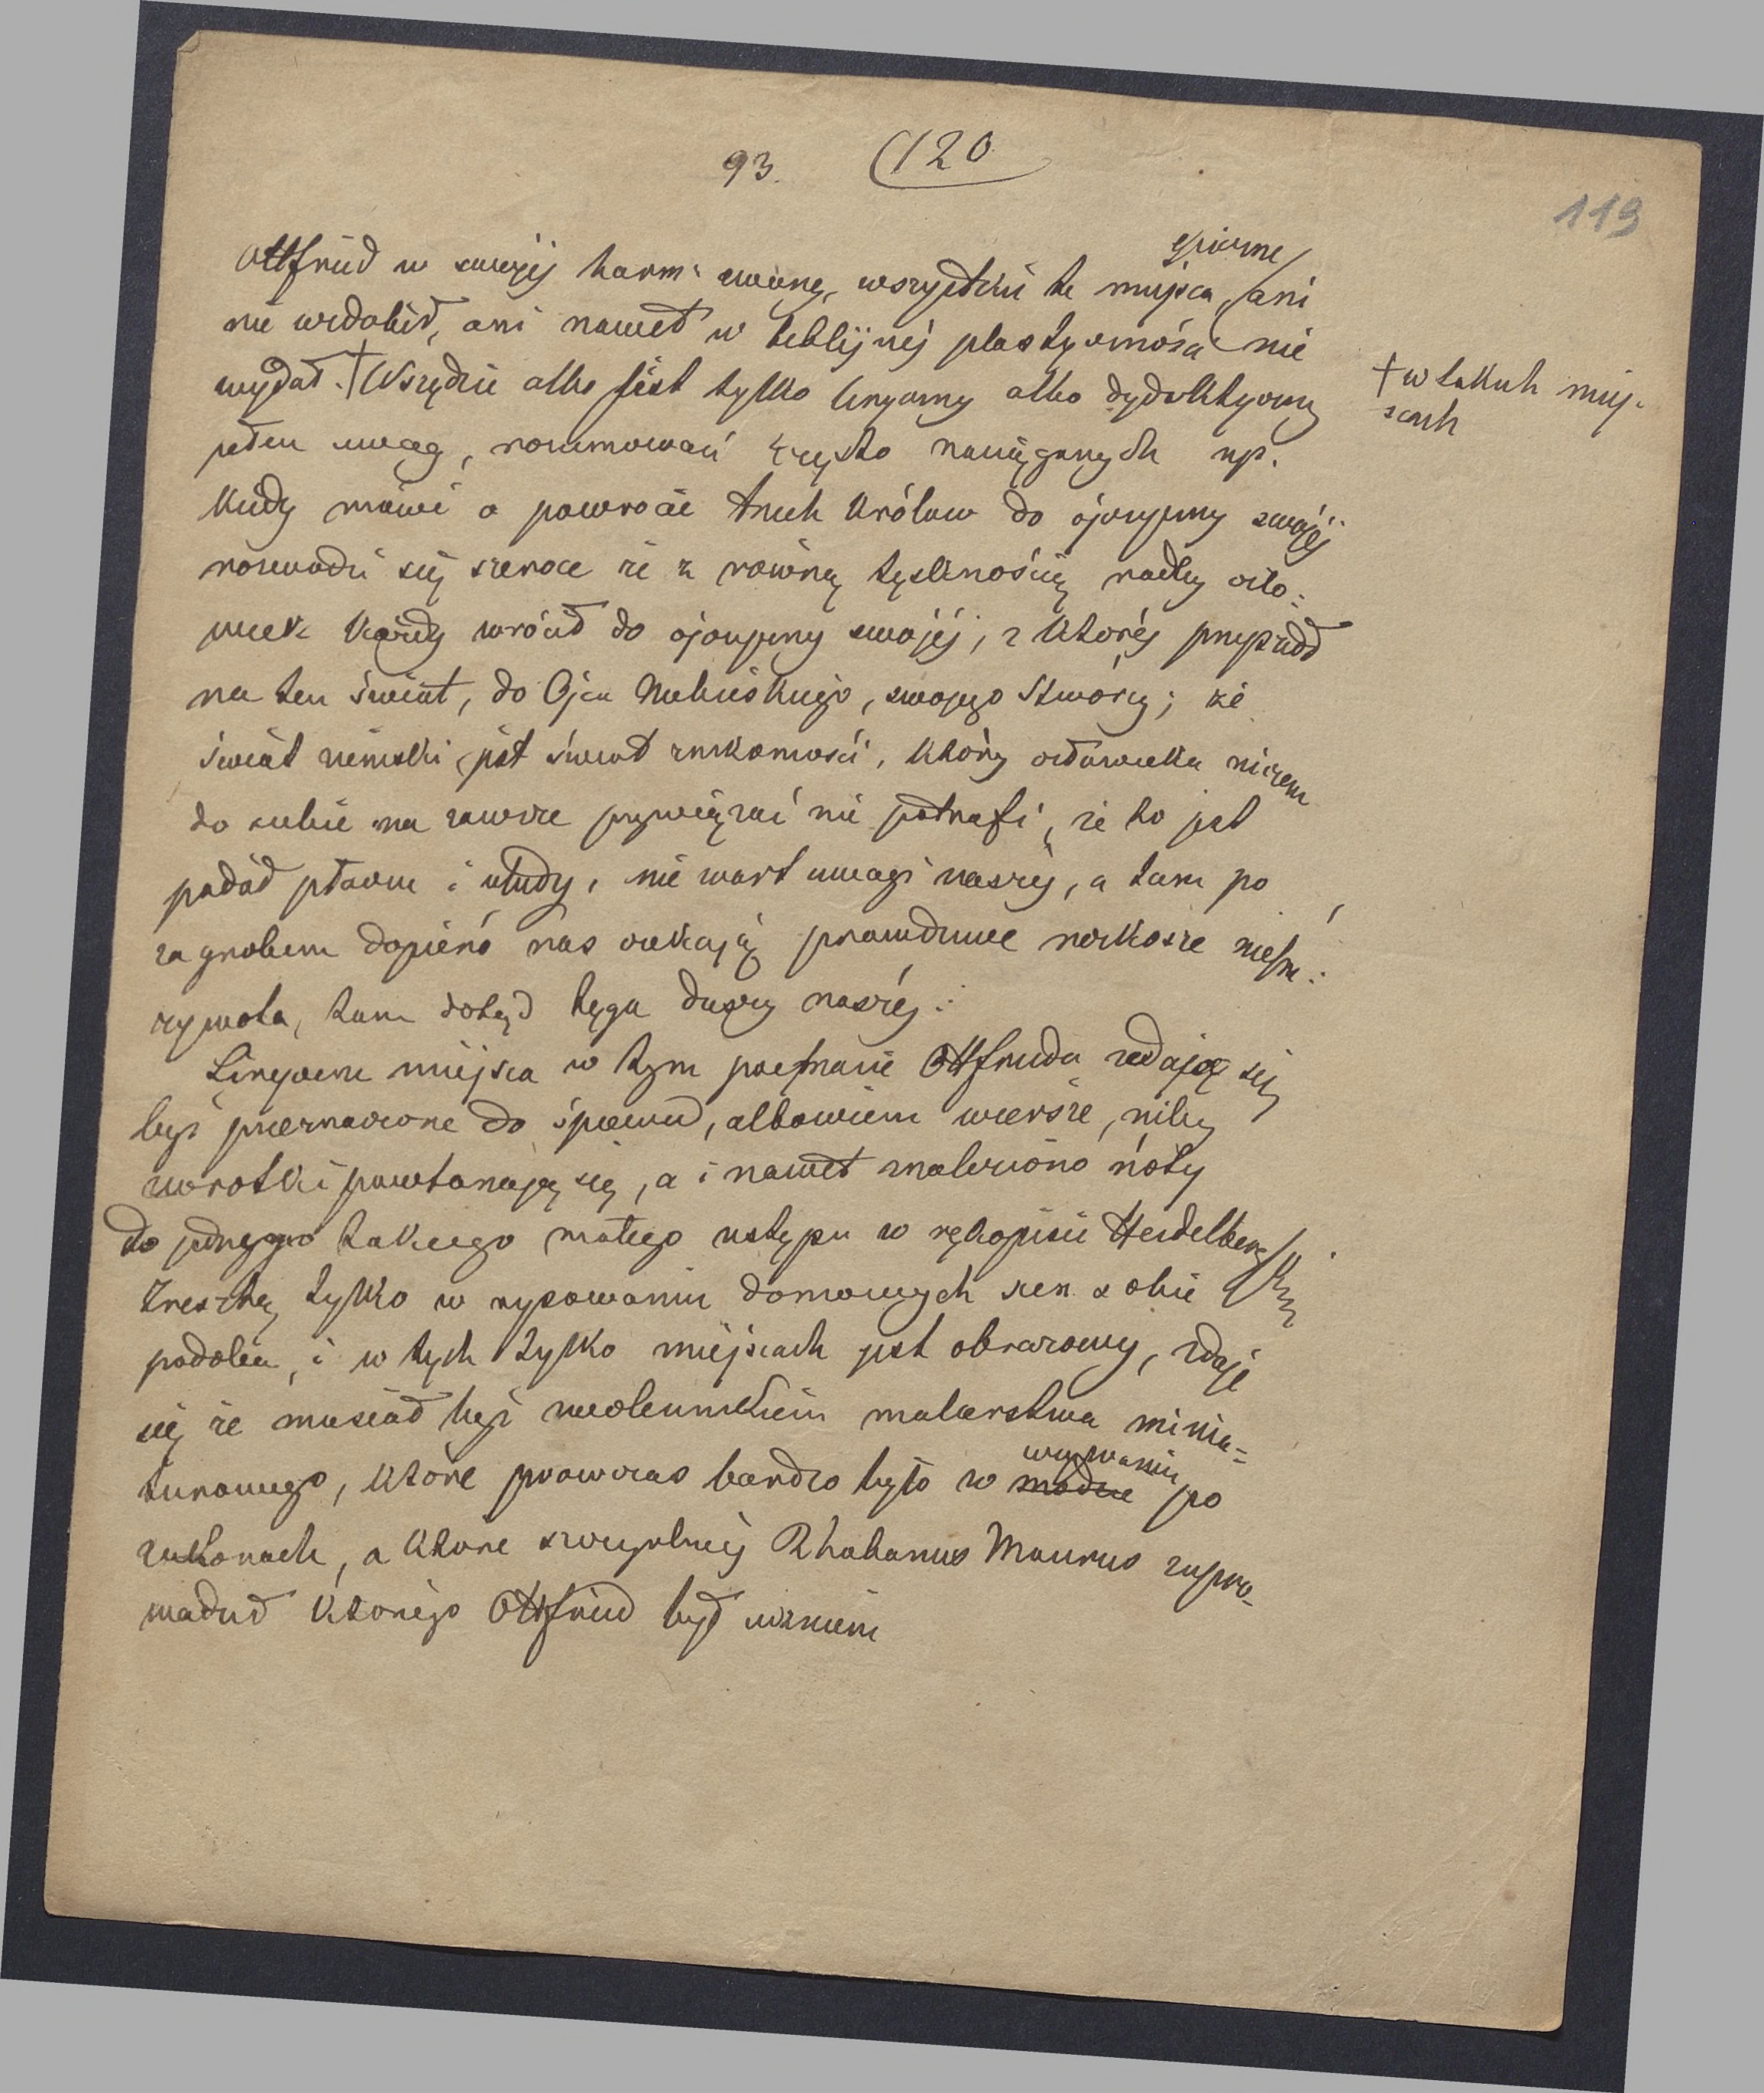 93. (120
119
Ottfried w swojéj harm: ewang. wszystkie te miejsca epiczne ani
nie ozdobił, ani nawet w biblijnéj plastyczności nie
wydał. † Wszędzie albo jest tylko liryczny albo dydaktyczny
† w takich miej-
scach
pełen uwag, rozumowań często naciąganych np.
kiedy mówi o powrocie trzech królów do ojczyzny swojéj
rozwodzi się szeroce że z równą tęsknością radby czło=
wiek każdy wrócił do ojczyzny swojéj, z któréj przyszedł
na ten świat, do Ojca Niebieskiego, swojego Stwórcy; że
świat ziemski jest świat znikomości, który człowieka niczem
do siebie na zawsze przywiązać nie potrafi, że to jest
padół płaczu i ułudy, nie wart uwagi naszéj, a tam po
za grobem dopiero nas czekają prawdziwe rozkosze
żywota, tam dotąd tęga duszy naszéj.
Liryczne miejsca w tym poemacie Ottfrieda zdają się
być przeznaczone do śpiewu, albowiem wiersze, niby
zwrotki powtarzają się, a i nawet znaleziono nóty
do jednego takiego małego ustępu w rękopisie Heidelberg
Zresztą tylko w rysowaniu domowych scen sobie
podoba, i w tych tylko miejscach jest obrazowy, zdaje
się że musiał być zwolennikiem malarstwa minia=
turowego, które podówczas bardzo było w modzie używaniu po
zakonach, a które szczególniéj Rhabanus Maurus zapro-
wadził którego Ottfried był uczniem